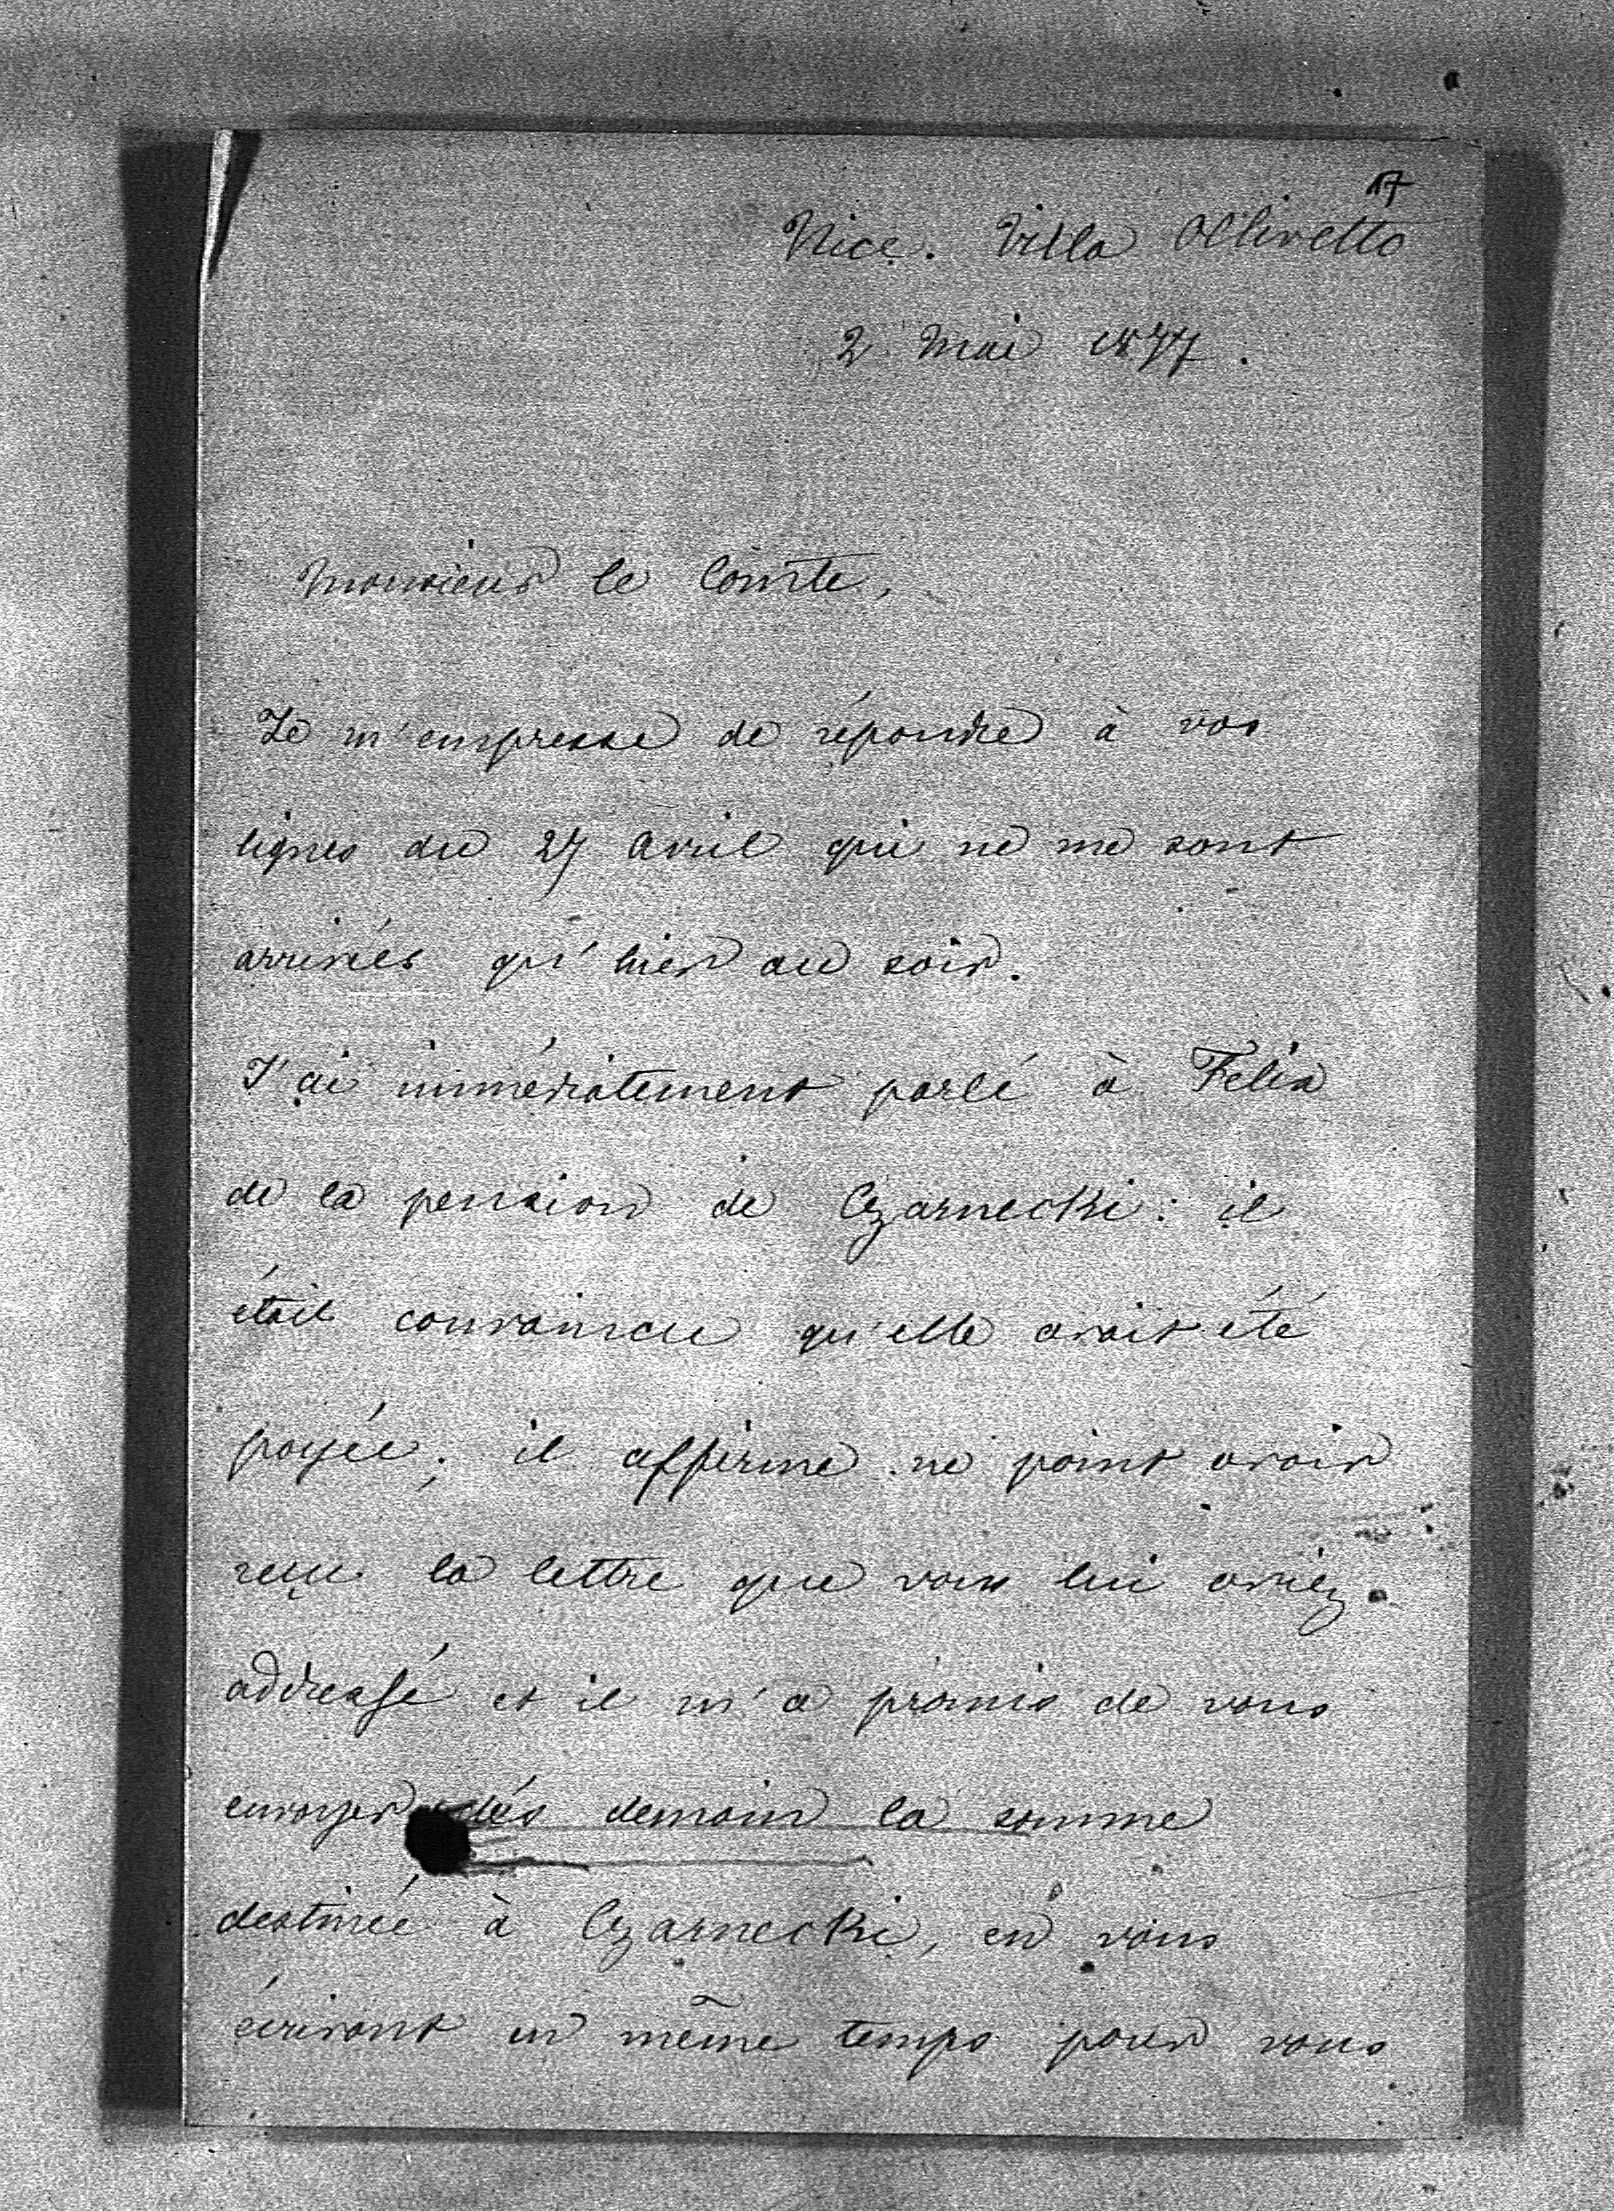 17
Nice. Villa Olivetto
2 Mai 1877.
Monsieur le Comte,
Je m'empresse de répondre à vos
lignes du 27 avril qui ne me sont
arrivés qu'hier au soir.
J'ai immédiatement parlé à Felix
de la pension de Czarnecki: il
était convaincu qu'elle avait été
payée; il affirme ne point avoir
reçu la lettre que vous lui aviez
addressé et il m'a promis de vous
envoyer dés demain la somme
destinée à Czarnecki, en vous
écrivant en même temps pour vous